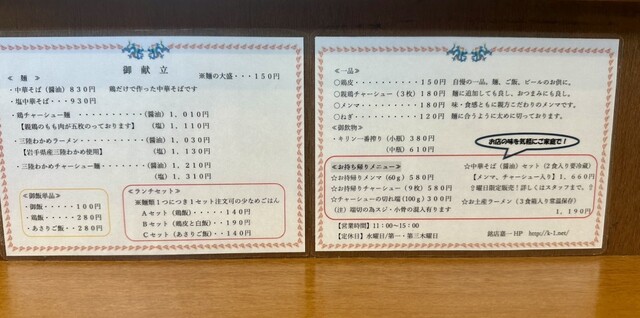 御献立
≪ 麺 ≫ ※麺の大盛・・・150円
・中華そば（醤油）830円 鶏だけで作った中華そばです
・塩中華そば・・・930円
・鶏チャーシュー麺・・・・・・・・・（醤油）1,010円
【親鶏のもも肉が五枚のっております】 （塩）1,110円
・三陸わかめラーメン・・・・・・・・（醤油）1,030円
【岩手県産三陸わかめ使用】 （塩）1,130円
・三陸わかめチャーシュー麺・・・・・（醤油）1,210円
（塩）1,310円
≪御飯単品≫
・御飯・・・・・100円
・鶏飯・・・・・280円
・あさりご飯・・280円
≪ランチセット≫
※麺類1つにつき1セット注文可の少なめごはん
Aセット（鶏飯）・・・・・140円
Bセット（鶏皮と白飯）・・190円
Cセット（あさりご飯）・・140円
≪一品≫
〇鶏皮・・・・・・・・・・150円 自慢の一品。麺、ご飯、ビールのお供に。
〇親鶏チャーシュー（3枚）180円 麺に追加しても良し、おつまみにも良し。
〇メンマ・・・・・・・・・180円 味・食感ともに親方こだわりのメンマです。
〇ねぎ・・・・・・・・・・120円 麺に合うように太めに切っております。
≪御飲物≫
・キリン一番搾り（小瓶）380円
（中瓶）610円
お店の味を気軽にご家庭で！
≪お持ち帰りメニュー≫
☆お持帰りメンマ（60g）580円
☆お持帰りチャーシュー（9枚）580円
☆チャーシューの切れ端（100g）300円
（注）端切の為スジ・小骨の混入有ります
☆中華そば（醤油）セット（2食入り要冷蔵）
【メンマ、チャーシュー入り】1,660円
⇧曜日限定販売！詳しくはスタッフまで。⇧
☆お土産ラーメン（3食箱入り常温保存）
1,190円
【営業時間】11：00～15：00
【定休日】水曜日/第一・第三木曜日 銘店嘉一HP http://k-1.net/